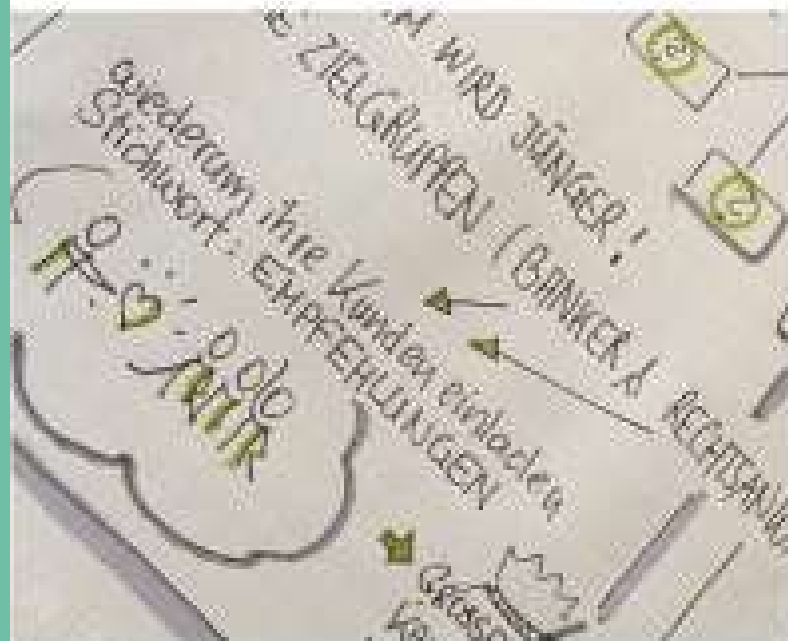 WIRD JÜNGER!
ZIELGRUPPEN (BANKER & RECHTSANW
wiederum ihre Kunden einladen
Stichwort: EMPFEHLUNGEN